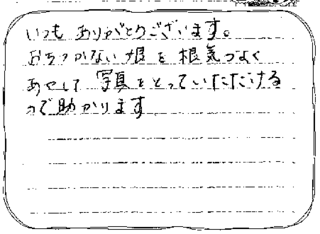 いつも ありがとうございます。
おちつかない娘を根気づよく
あやして 写真をとっていただける
ので助かります